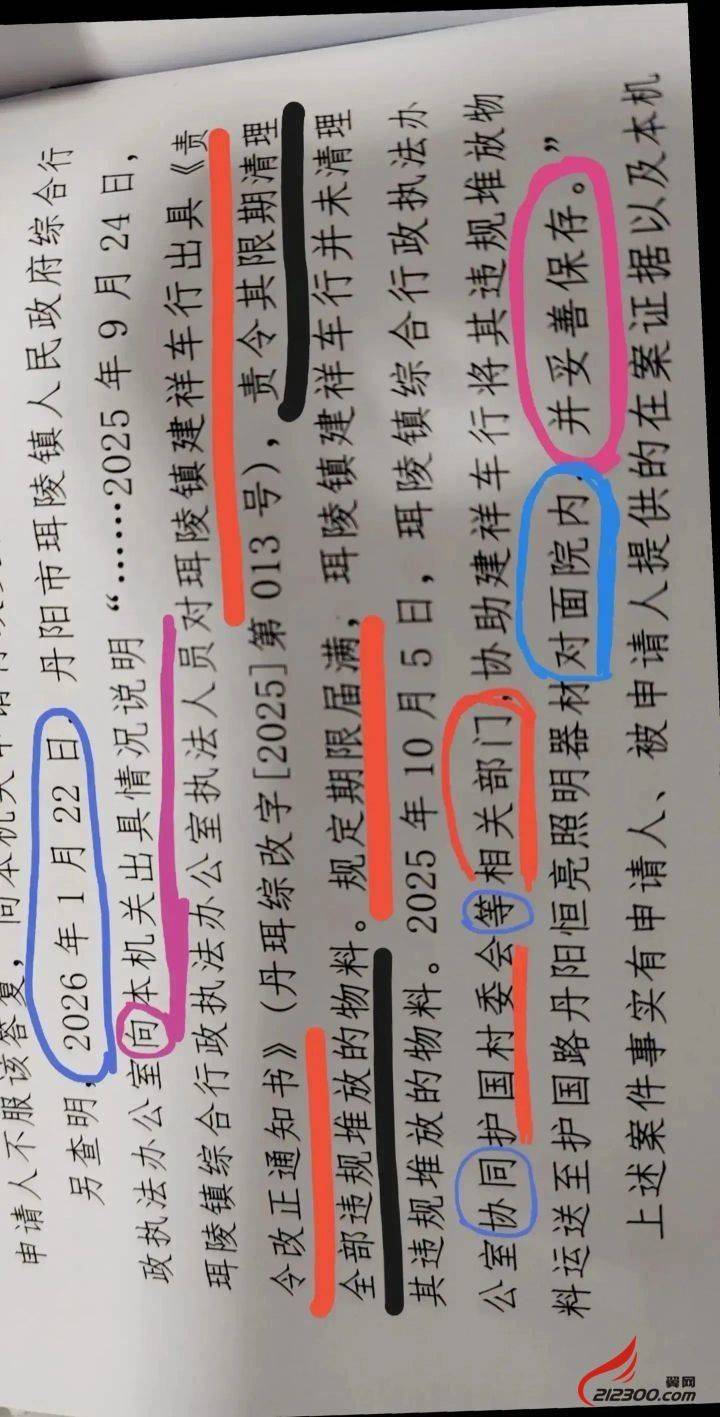 申请人不服该答复，向本机关申请行政复
另查明，2026年1月22日，丹阳市珥陵镇人民政府综合行
政执法办公室向本机关出具情况说明“……2025年9月24日，
珥陵镇综合行政执法办公室执法人员对珥陵镇建祥车行出具《责
令改正通知书》（丹珥综改字[2025]第013号），责令其限期清理
全部违规堆放的物料。规定期限届满，珥陵镇建祥车行并未清理
其违规堆放的物料。2025年10月5日，珥陵镇综合行政执法办
公室协同护国村委会等相关部门，协助建祥车行将其违规堆放物
料运送至护国路丹阳恒亮照明器材对面院内，并妥善保存。”
上述案件事实有申请人、被申请人提供的在案证据以及本机
翼网
212300.com